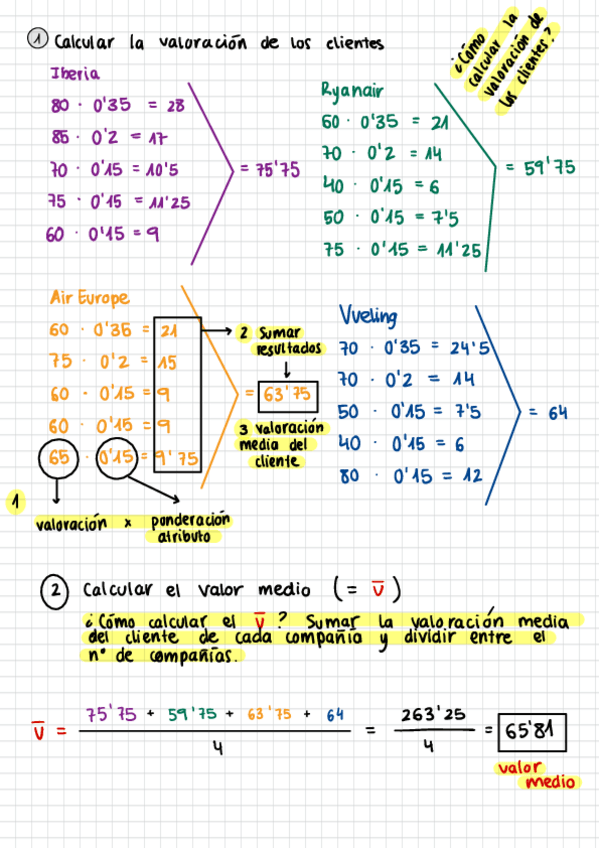 1 Calcular la valoración de los clientes
¿Cómo
calcular la
valoración de
los clientes?
Iberia
80 · 0'35 = 28
85 · 0'2 = 17
70 · 0'15 = 10'5
75 · 0'15 = 11'25
60 · 0'15 = 9
= 75'75
Ryanair
60 · 0'35 = 21
70 · 0'2 = 14
40 · 0'15 = 6
50 · 0'15 = 7'5
75 · 0'15 = 11'25
= 59'75
Air Europe
60 · 0'35 = 21
75 · 0'2 = 15
60 · 0'15 = 9
60 · 0'15 = 9
65 · 0'15 = 9'75
2 Sumar
resultados
= 63'75
3 valoración
media del
cliente
1
valoración x ponderación
atributo
Vueling
70 · 0'35 = 24'5
70 · 0'2 = 14
50 · 0'15 = 7'5
40 · 0'15 = 6
80 · 0'15 = 12
= 64
2 Calcular el valor medio (= v̅)
¿Cómo calcular el v̅? Sumar la valoración media
del cliente de cada compañía y dividir entre el
nº de compañías.
v̅ = 75'75 + 59'75 + 63'75 + 64 / 4 = 263'25 / 4 = 65'81
valor
medio